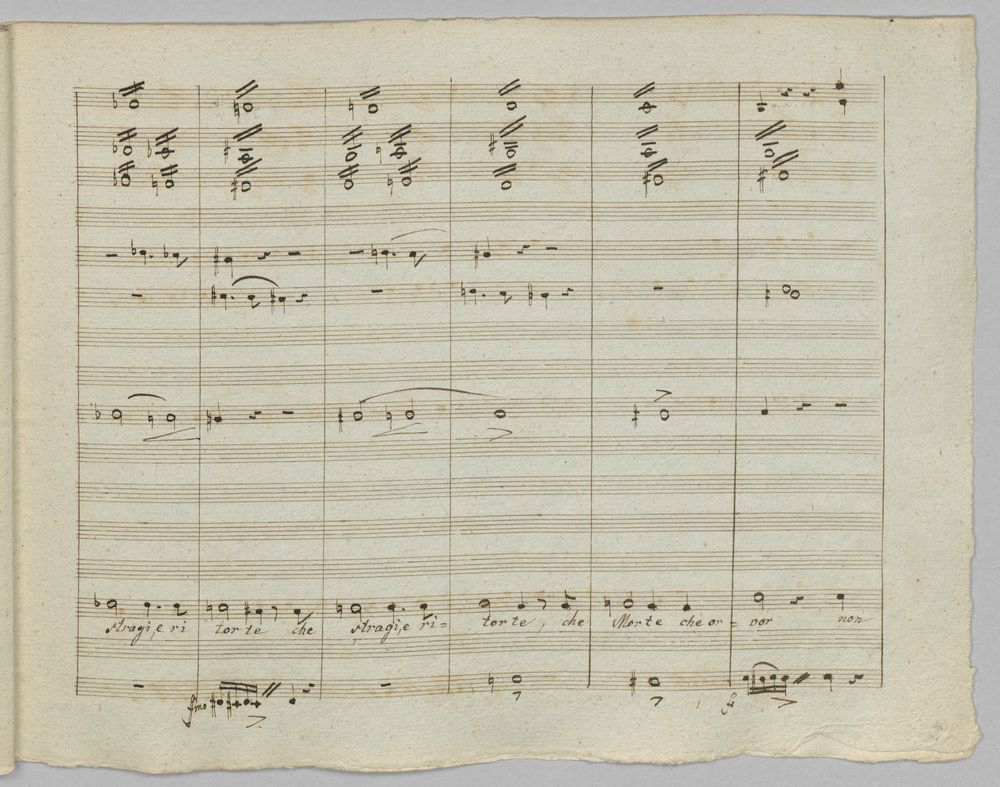 Stragi, e ri torte che Stragi, e ri= torte, che Morte che or= ror non
fmo
fo